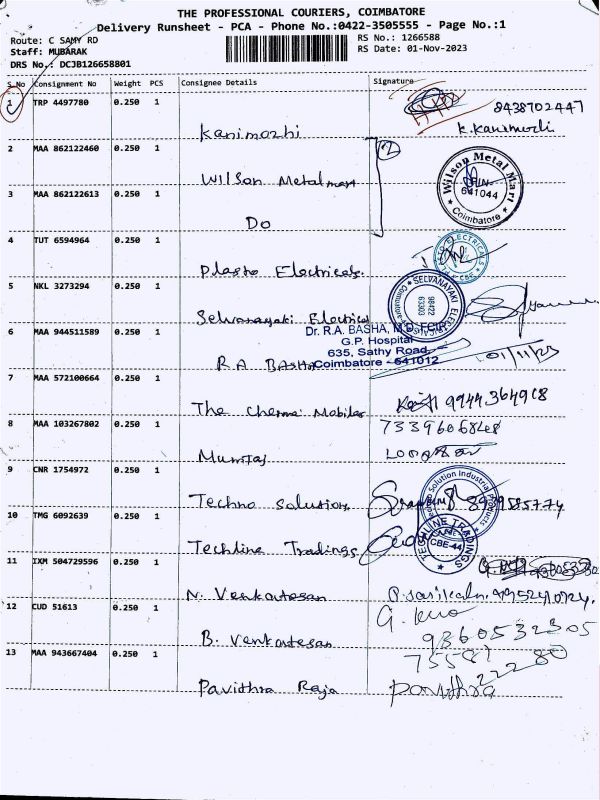 THE PROFESSIONAL COURIERS, COIMBATORE
Delivery Runsheet - PCA - Phone No.:0422-3505555 - Page No.:1
Route: C SAMY RD
RS No.: 1266588
Staff: MUBARAK
RS Date: 01-Nov-2023
DRS No.: DCJB126658801
S.No Consignment No Weight PCS Consignee Details Signature
1 TRP 4497780 0.250 1
8438702447
Kanimozhi
K. Kanimozhi
2 MAA 862122460 0.250 1
Wilson Metal mart
Wilson Metal Mart
641044
Coimbatore
3 MAA 862122613 0.250 1
Do
4 TUT 6594964 0.250 1
Plasto Electricals.
5 NKL 3273294 0.250 1
SELVANAYAKI ELECTRICALS
98422
63303
Coimbatore
Selvanayaki Electrical
6 MAA 944511589 0.250 1
Dr. R.A. BASHA,
G.P. Hospital
635, Sathy Road,
Coimbatore - 641012
R A BASHA
01/11/23
7 MAA 572100664 0.250 1
The Chennai Mobiles
9944364918
8 MAA 103267802 0.250 1
Mumtaj
9 CNR 1754972 0.250 1
Techno Solution Industrial Products
Techno Solution
10 TMG 6092639 0.250 1
Techline Tradings
TECHLINE TRADINGS
CBE-44
11 IXM 504729596 0.250 1
N. Venkatesan
12 CUD 51613 0.250 1
B. Venkatesan
9360532305
13 MAA 943667404 0.250 1
Pavithra Raja
Pavithra